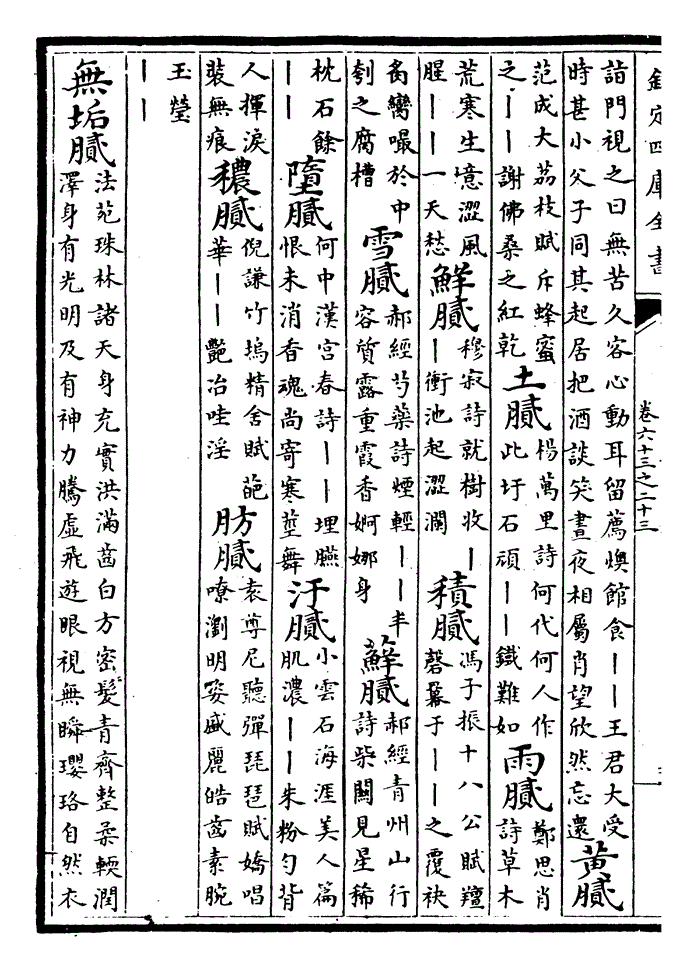 欽定四庫全書
卷六十三之二十三
詣門視之曰無苦久客心動耳留薦燠館食——王君大受
時甚小父子同其起居把酒談笑晝夜相屬肖望欣然忘還
黃膩
范成大荔枝賦斥蜂蜜
之——謝佛桑之紅乾
土膩
楊萬里詩何代何人作
此圩石頑——鐵難如
雨膩
鄭思肖
詩草木
荒寒生意澀風
腥——一天愁
鮮膩
穆寂詩就樹收—
—衝池起澀瀾
積膩
馮子振十八公賦羶
磬羃于——之覆袂
臠嘬於中
刳之腐槽
雪膩
郝經芍藥詩煙輕——半
容質露重霞香婀娜身
蘚膩
郝經青州山行
詩柴關見星稀
枕石餘
——
墮膩
何中漢宮春詩——埋臙
恨未消香魂尚寄寒莖舞
汗膩
小雲石海涯美人篇
肌濃——朱粉勻背
人揮淚
裝無痕
穠膩
倪謙竹塢精舍賦葩
華——艷冶哇淫
肪膩
袁尊尼聽彈琵琶賦嬌唱
嘹瀏明姿盛麗皓齒素腕
玉瑩
——
無垢膩
法苑珠林諸天身充實洪滿齒白方密髮青齊整柔輭潤
澤身有光明及有神力騰虛飛遊眼視無瞬瓔珞自然衣